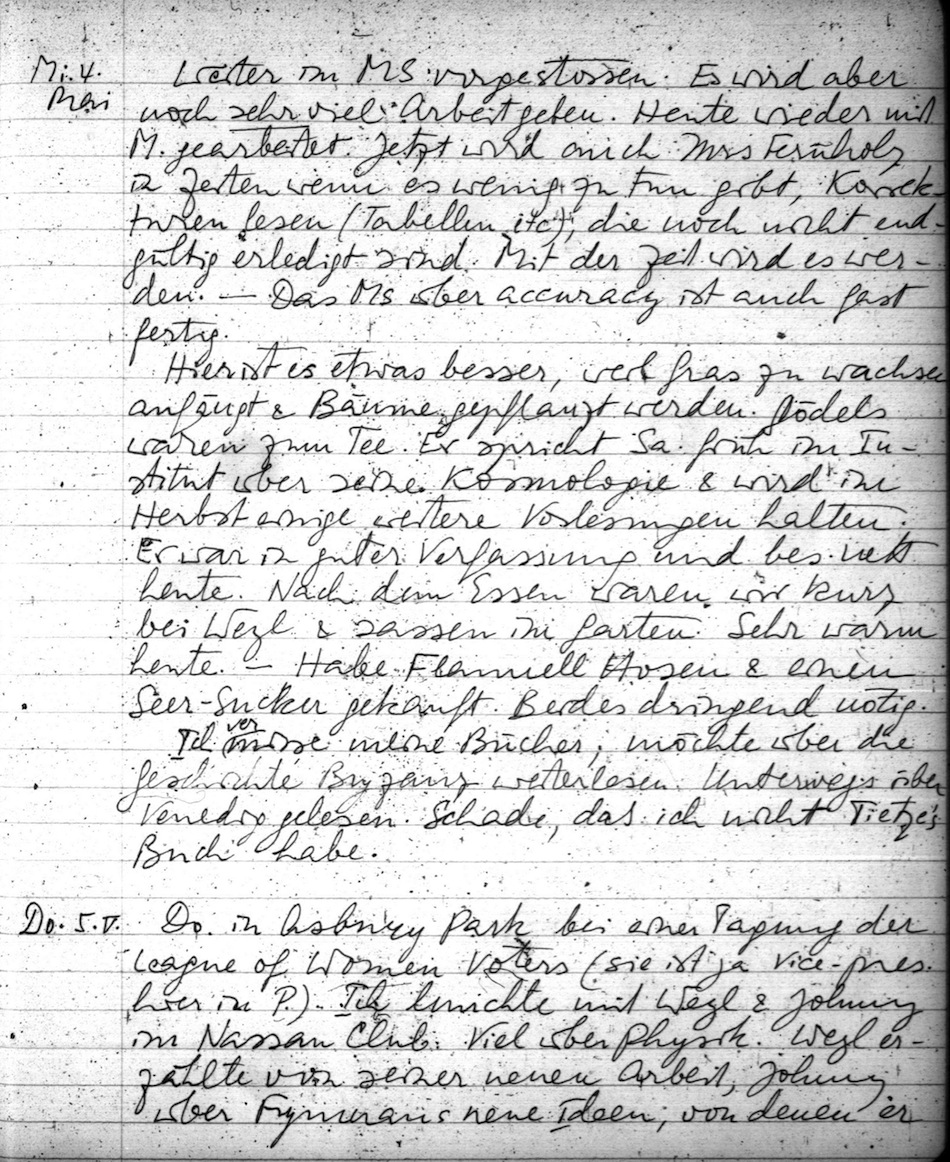 Mi. 4. Mai
Weiter im MS vorgestossen. Es wird aber
noch sehr viel Arbeit geben. Heute wieder mit
M. gearbeitet. Jetzt wird auch Mrs Fernholz
in Zeiten wenn es wenig zu tun gibt, Korrek-
turen lesen (Tabellen, etc), die noch nicht end-
gültig erledigt sind. Mit der Zeit wird es wer-
den. — Das Ms über accuracy ist auch fast
fertig.
Hier ist es etwas besser, weil Gras zu wachsen
anfängt & Bäume gepflanzt werden. Gödels
waren zum Tee. Er spricht Sa. früh im In-
stitut über seine Kosmologie & wird im
Herbst einige weitere Vorlesungen halten.
Er war in guter Verfassung und bes. nett
heute. Nach dem Essen waren wir kurz
bei Weyl & sassen im Garten. Sehr warm
heute. — Habe Flannell Hosen & einen
Seer-Sucker gekauft. Beides dringend nötig.
Ich vermisse meine Bücher, möchte über die
Geschichte Byzanz weiterlesen. Unterwegs über
Venedig gelesen. Schade, das ich nicht Tietze's
Buch habe.
Do. 5. V. Do. in Asbury Park bei einer Tagung der
League of Women Voters (sie ist ja Vice-pres.
hier in P.). Ich lunchte mit Weyl & Johnny
im Nassau Club. Viel über Physik. Weyl er-
zählte von seiner neuen Arbeit, Johnny
über neue Ideen, von denen er